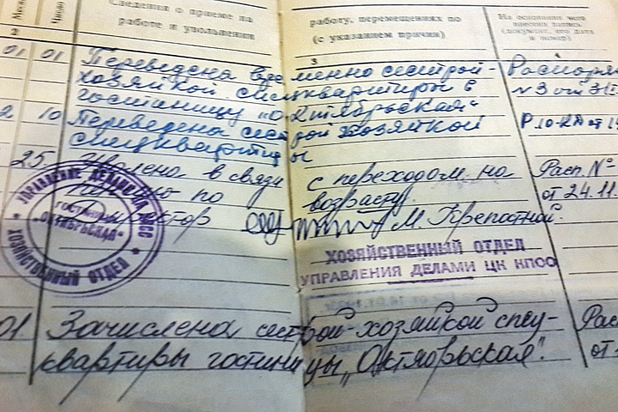 Сведения о приеме на
работу, перемещениях по
На основании чего
работе и увольнении
(с указанием причин)
внесена запись
(документ, его дата
и номер)
Месяц
Число
2
3
4
01 01 Переведена временно сестрой-
хозяйкой спецквартиры в
гостиницу "Октябрьская"
Распоряж
№3 от 31
10 Переведена сестрой хозяйкой
спецквартиры
Р.10-
25 Уволена в связи с переходом на
пенсию по возрасту.
Расп. №
от 24.11.
Директор М. Крепотной.
УПРАВЛЕНИЕ ДЕЛАМИ ЦК КПСС
ГОСТИНИЦА
"ОКТЯБРЬСКАЯ"
ХОЗЯЙСТВЕННЫЙ ОТДЕЛ
ХОЗЯЙСТВЕННЫЙ ОТДЕЛ
УПРАВЛЕНИЯ ДЕЛАМИ ЦК КПСС
01 Зачислена сестрой-хозяйкой спец-
квартиры гостиницы "Октябрьская".
Рас
от